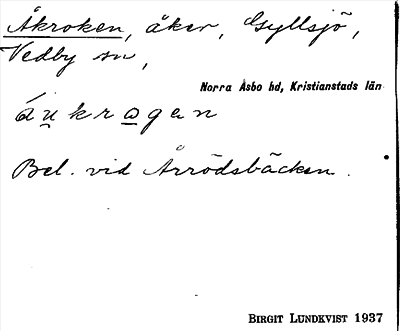 Åkroken, åker, Gyllsjö,
Vedby sn,
Norra Åsbo hd, Kristianstads län
áu̲kro̲gen
Bel. vid Årrödsbäcken.
BIRGIT LUNDKVIST 1937